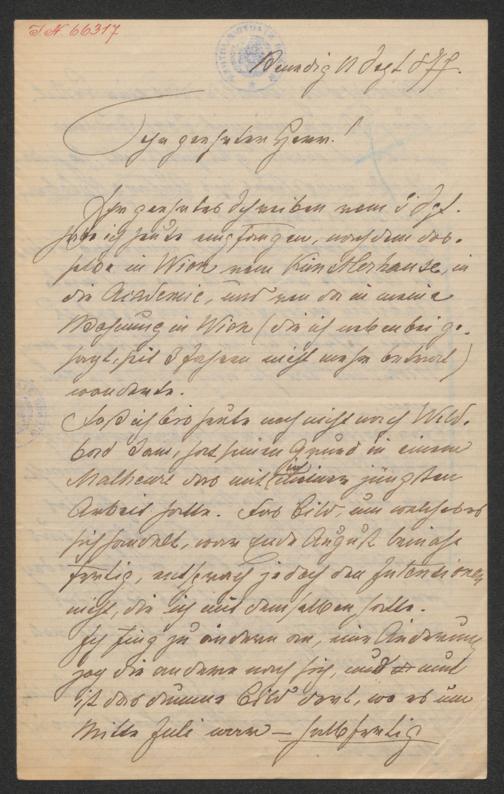 I.N. 66317
Venedig 11 Sept 877.
Sehr geehrter Herr!
Ihr geehrtes Schreiben vom 5 Sept.
habe ich heute empfangen, nachdem das-
selbe in Wien vom Künstlerhause, in
die Academie, und von da in meine
Wohnung in Wien (die ich nebenbei ge-
sagt, seit 3 Jahren nicht mehr betrat)
wanderte.
Daß ich bis heute noch nicht nach Wild-
bad kam, hat seinen Grund in einem
Malheur das mit ich meiner jüngsten
Arbeit hatte. Das Bild, um welches es
sich handelt, war Ende August beinahe
fertig, entsprach jedoch den Intentionen
nicht, die ich mit demselben hatte.
Ich fing zu ändern an, eine Änderung
zog die andere nach sich, und nun
ist das dumme Bild dort, wo es um
Mitte Juli war – halbfertig